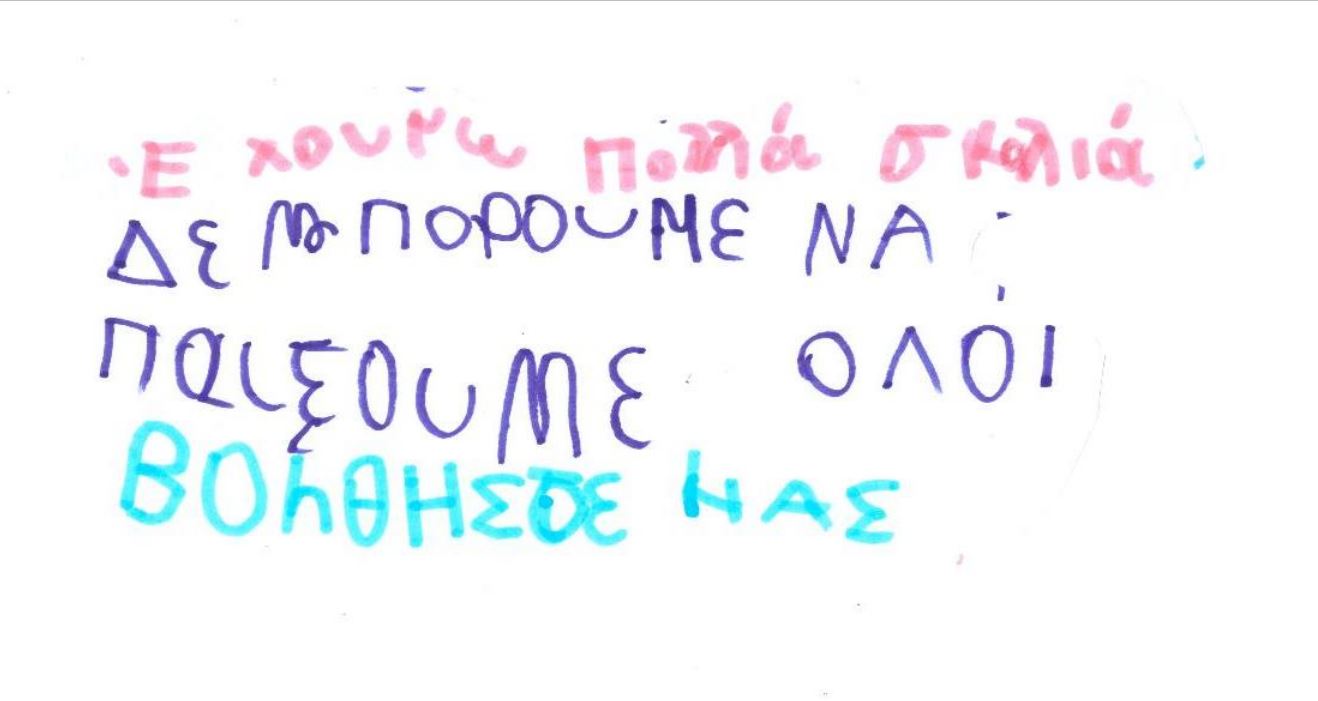 Έ χουμω πολλά σκαλιά
ΔΕ ΜΠΟΡΟΥΜΕ ΝΑ
ΠαιξΟυΜΕ ΟΛΟΙ
ΒΟηΘΗΣΤΕ ΜΑΣ